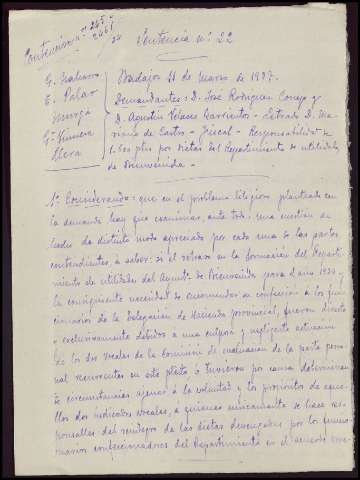 Contencioso nº 245-
2461
34
Sentencia nº 22
E. Palao
Murga
Gª Llera
Badajoz 11 de Marzo de 1937.
Demandantes: D. José Rodriguez Cornejo y
D. Agustin Velasco Barrientos - Letrado D. Ma-
riano de Castro - Fiscal - Responsabilidad de
ptas por dietas del Repartimiento de utilidades
de Bienvenida -
1º Considerando: que en el problema litigioso planteado en
la demanda hay que examinar, ante todo, una cuestion de
hecho de distinto modo apreciado por cada una de las partes
contendientes, a saber: si el retraso en la formacion del Reparti-
miento de utilidades del Ayuntº de Bienvenida para el año 1930 y
la consiguiente necesidad de encomendar su confeccion á los fun-
cionarios de la Delegacion de Hacienda provincial, fueron directa
y exclusivamente debidos a una culposa y negligente actuacion
de los dos vocales de la Comision de evaluacion de la parte perso-
nal recurrentes en este pleito ó tuvieron por causa determinan-
te circunstancias ajenas á la voluntad y los propósitos de aque-
llos dos indicados vocales, a quienes unicamente se hace res-
ponsables del reintegro de las dietas devengadas por los funcio-
narios confeccionadores del Repartimiento en el acuerdo